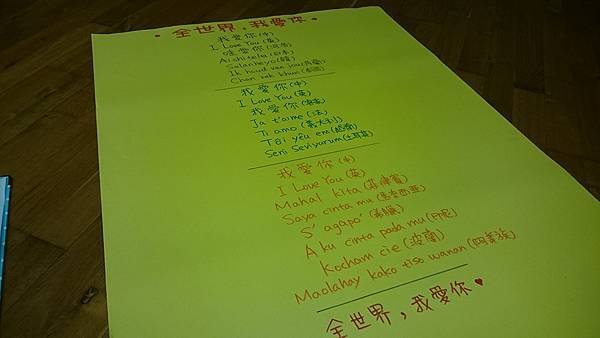 • 全世界，我愛你 •
我愛你(中)
I Love You (英)
哇愛你(河洛)
Aishitelu (日本)
Salanheyo (韓)
Ik houd van jou (荷蘭)
Chan rak khun (泰國)
我愛你(中)
I Love You (英)
我愛你(客家)
Ja t'aime (法)
Ti amo (義大利)
Tôi yêu em (越南)
Seni Seviyurum (土耳其)
我愛你(中)
I Love You (英)
Mahal kita (菲律賓)
Saya cinta mu (馬來西亞)
S'agapo' (希臘)
Aku cinta pada mu (印尼)
Kocham cie (波蘭)
Maolahay kako tiso wanan (阿美族)
全世界，我愛你♥